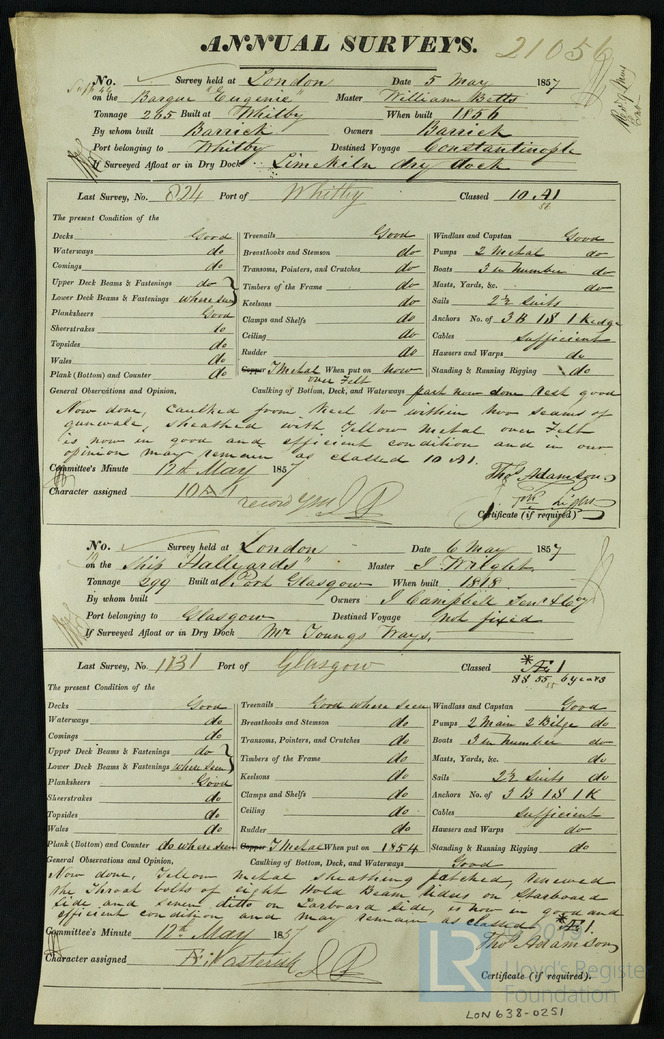 ANNUAL SURVEYS.
21056
No. Survey held at London Date 5 May 1857
on the Barque "Eugenie" Master William Betts
Tonnage 265 Built at Whitby When built 1856
By whom built Barrick Owners Barrick
Port belonging to Whitby Destined Voyage Constantinople
If Surveyed Afloat or in Dry Dock Limekiln dry dock
Last Survey, No. 824 Port of Whitby Classed 10 A1
The present Condition of the
Decks Good Treenails Good Windlass and Capstan Good
Waterways do Breasthooks and Stemson do Pumps 2 Metal do
Comings do Transoms, Pointers, and Crutches do Boats 3 in number do
Upper Deck Beams & Fastenings do Timbers of the Frame do Masts, Yards, &c. do
Lower Deck Beams & Fastenings where seen Keelsons do Sails 2 Suits
Planksheers Good Clamps and Shelfs do Anchors No. of 3 B 1 S 1 Kedge
Sheerstrakes do Ceiling do Cables Sufficient
Topsides do Rudder do Hawsers and Warps do
Wales do Copper Y Metal When put on now Standing & Running Rigging do
Plank (Bottom) and Counter do over Felt
General Observations and Opinion, Caulking of Bottom, Deck, and Waterways part now done rest good
Now done, caulked from keel to within two seams of
gunwale, sheathed with Yellow Metal over Felt
is now in good and efficient condition and in our
opinion may remain as classed 10 A1.
Committee's Minute 12th May 1857 Thos. Adamson
Character assigned 10 A1
record YM
Certificate (if required)
No. Survey held at London Date 6 May 1857
on the Ship "Hallyards" Master J Wright
Tonnage 299 Built at Port Glasgow When built 1818
By whom built Owners J Campbell Senr & Coy
Port belonging to Glasgow Destined Voyage not fixed
If Surveyed Afloat or in Dry Dock Mr Youngs Ways,
Last Survey, No. 1131 Port of Glasgow Classed *Æ 1
88.55 6 years
The present Condition of the
Decks Good Treenails Good where seen Windlass and Capstan Good
Waterways do Breasthooks and Stemson do Pumps 2 Main 2 Bilge do
Comings do Transoms, Pointers, and Crutches do Boats 3 in number do
Upper Deck Beams & Fastenings do Timbers of the Frame do Masts, Yards, &c. do
Lower Deck Beams & Fastenings where seen Keelsons do Sails 2 Suits do
Planksheers Good Clamps and Shelfs do Anchors No. of 3 B 1 S 1 K
Sheerstrakes do Ceiling do Cables Sufficient
Topsides do Rudder do Hawsers and Warps do
Wales do Copper Y Metal When put on 1854 Standing & Running Rigging do
Plank (Bottom) and Counter do where seen
General Observations and Opinion, Caulking of Bottom, Deck, and Waterways Good
Now done, Yellow Metal sheathing patched, renewed
the Throat bolts of eight Hold Beam Knees on Starboard
side and seven ditto on Larboard side, is now in good and
efficient condition and may remain as classed *Æ 1.
Committee's Minute 12th May 185 Thos. Adamson
Character assigned Æ 1 asterisk
Certificate (if required).
LR
Lloyd's Register
Foundation
LON 638-0251